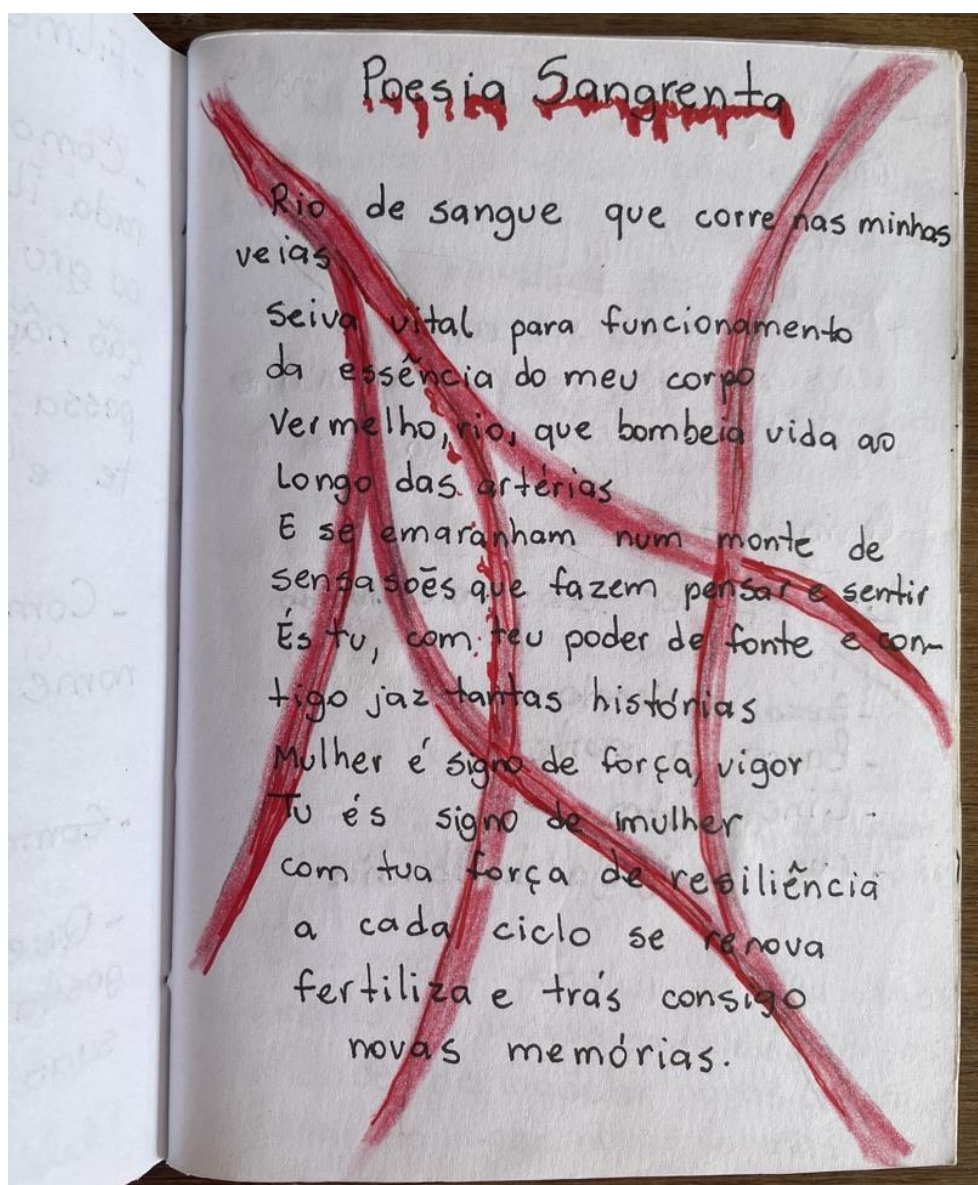 Poesia Sangrenta
Rio de sangue que corre nas minhas
veias
Seiva vital para funcionamento
da essência do meu corpo
Vermelho, rio, que bombeia vida ao
Longo das artérias
E se emaranham num monte de
sensasoẽs que fazem pensar e sentir
És tu, com teu poder de fonte e con-
tigo jaz tantas histórias
Mulher é signo de força, vigor
Tu és signo de mulher
com tua força de resiliência
a cada ciclo se renova
fertiliza e trás consigo
novas memórias.